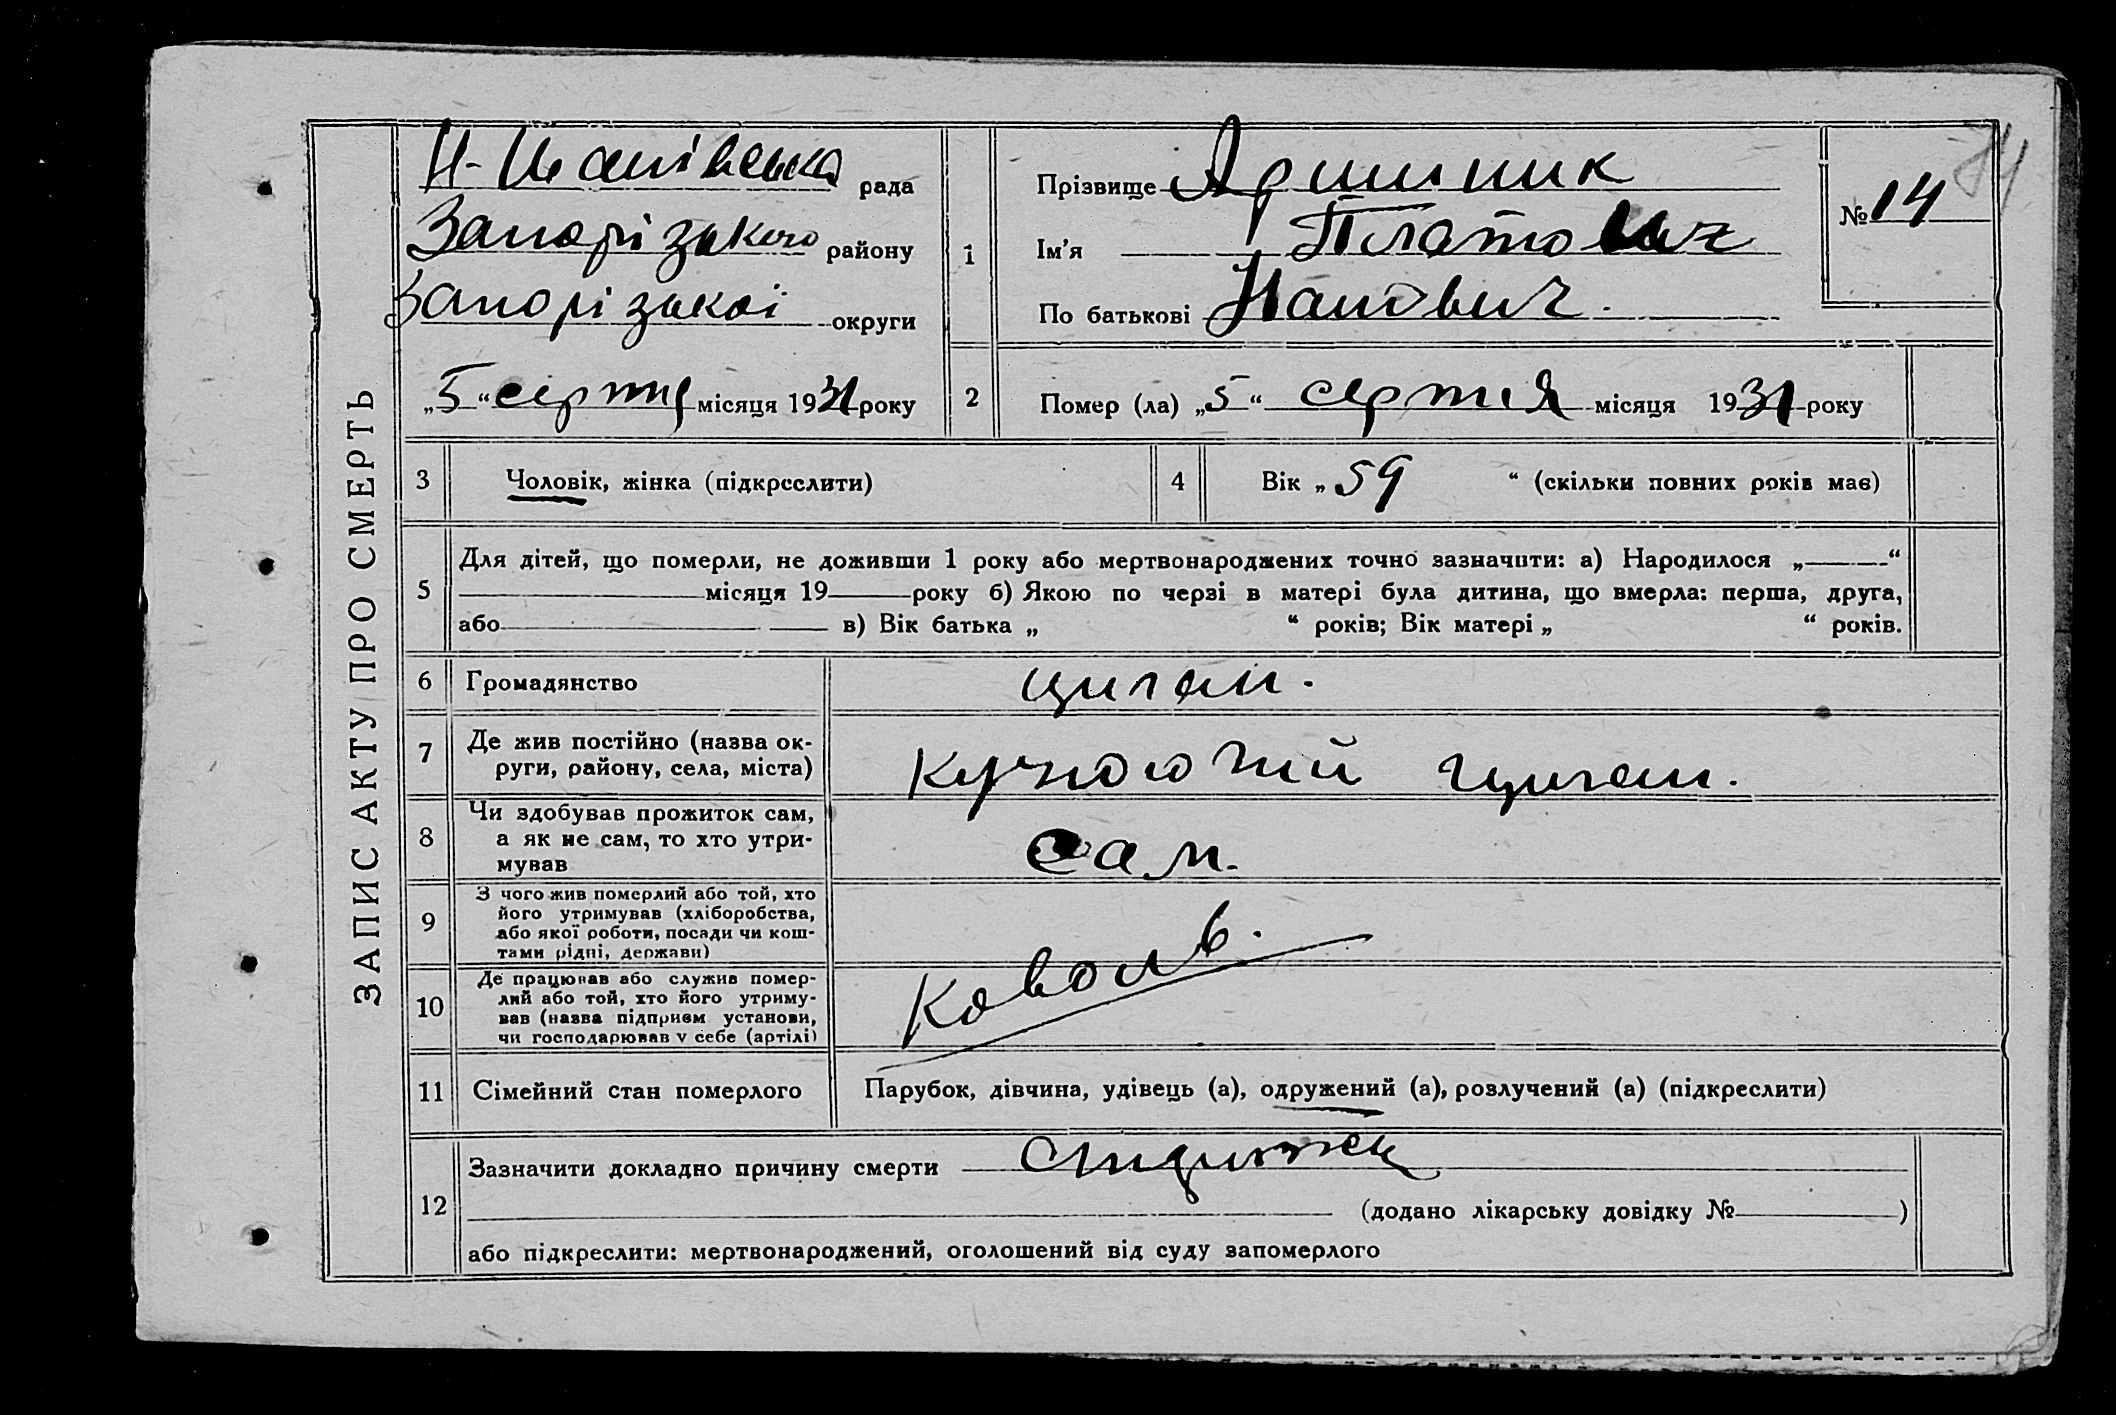 ЗАПИС АКТУ ПРО СМЕРТЬ
рада
Запорізького району
Запорізької округи
„5“ серпня місяця 1931 року
1
Прізвище
Ім'я
По батькові
№ 14
2
Помер (ла) „5“ серпня місяця 1931 року
3
Чоловік, жінка (підкреслити)
4
Вік „59“ (скільки повних років має)
5
Для дітей, що померли, не доживши 1 року або мертвонароджених точно зазначити: а) Народилося „ “
місяця 19 року б) Якою по черзі в матері була дитина, що вмерла: перша, друга,
або в) Вік батька „ “ років; Вік матері „ “ років.
6
Громадянство
циган.
7
Де жив постійно (назва ок-
руги, району, села, міста)
Кучуючий циган.
8
Чи здобував прожиток сам,
а як не сам, то хто утри-
мував
сам.
9
З чого жив померлий або той, хто
його утримував (хліборобства,
або якої роботи, посади чи кош-
тами рідні, держави)
Коваль.
10
Де працював або служив помер-
лий або той, хто його утриму-
вав (назва підприєм установи,
чи господарював у себе (артілі)
11
Сімейний стан померлого
Парубок, дівчина, удівець (а), одружений (а), розлучений (а) (підкреслити)
12
Зазначити докладно причину смерти
(додано лікарську довідку № )
або підкреслити: мертвонароджений, оголошений від суду запомерлого